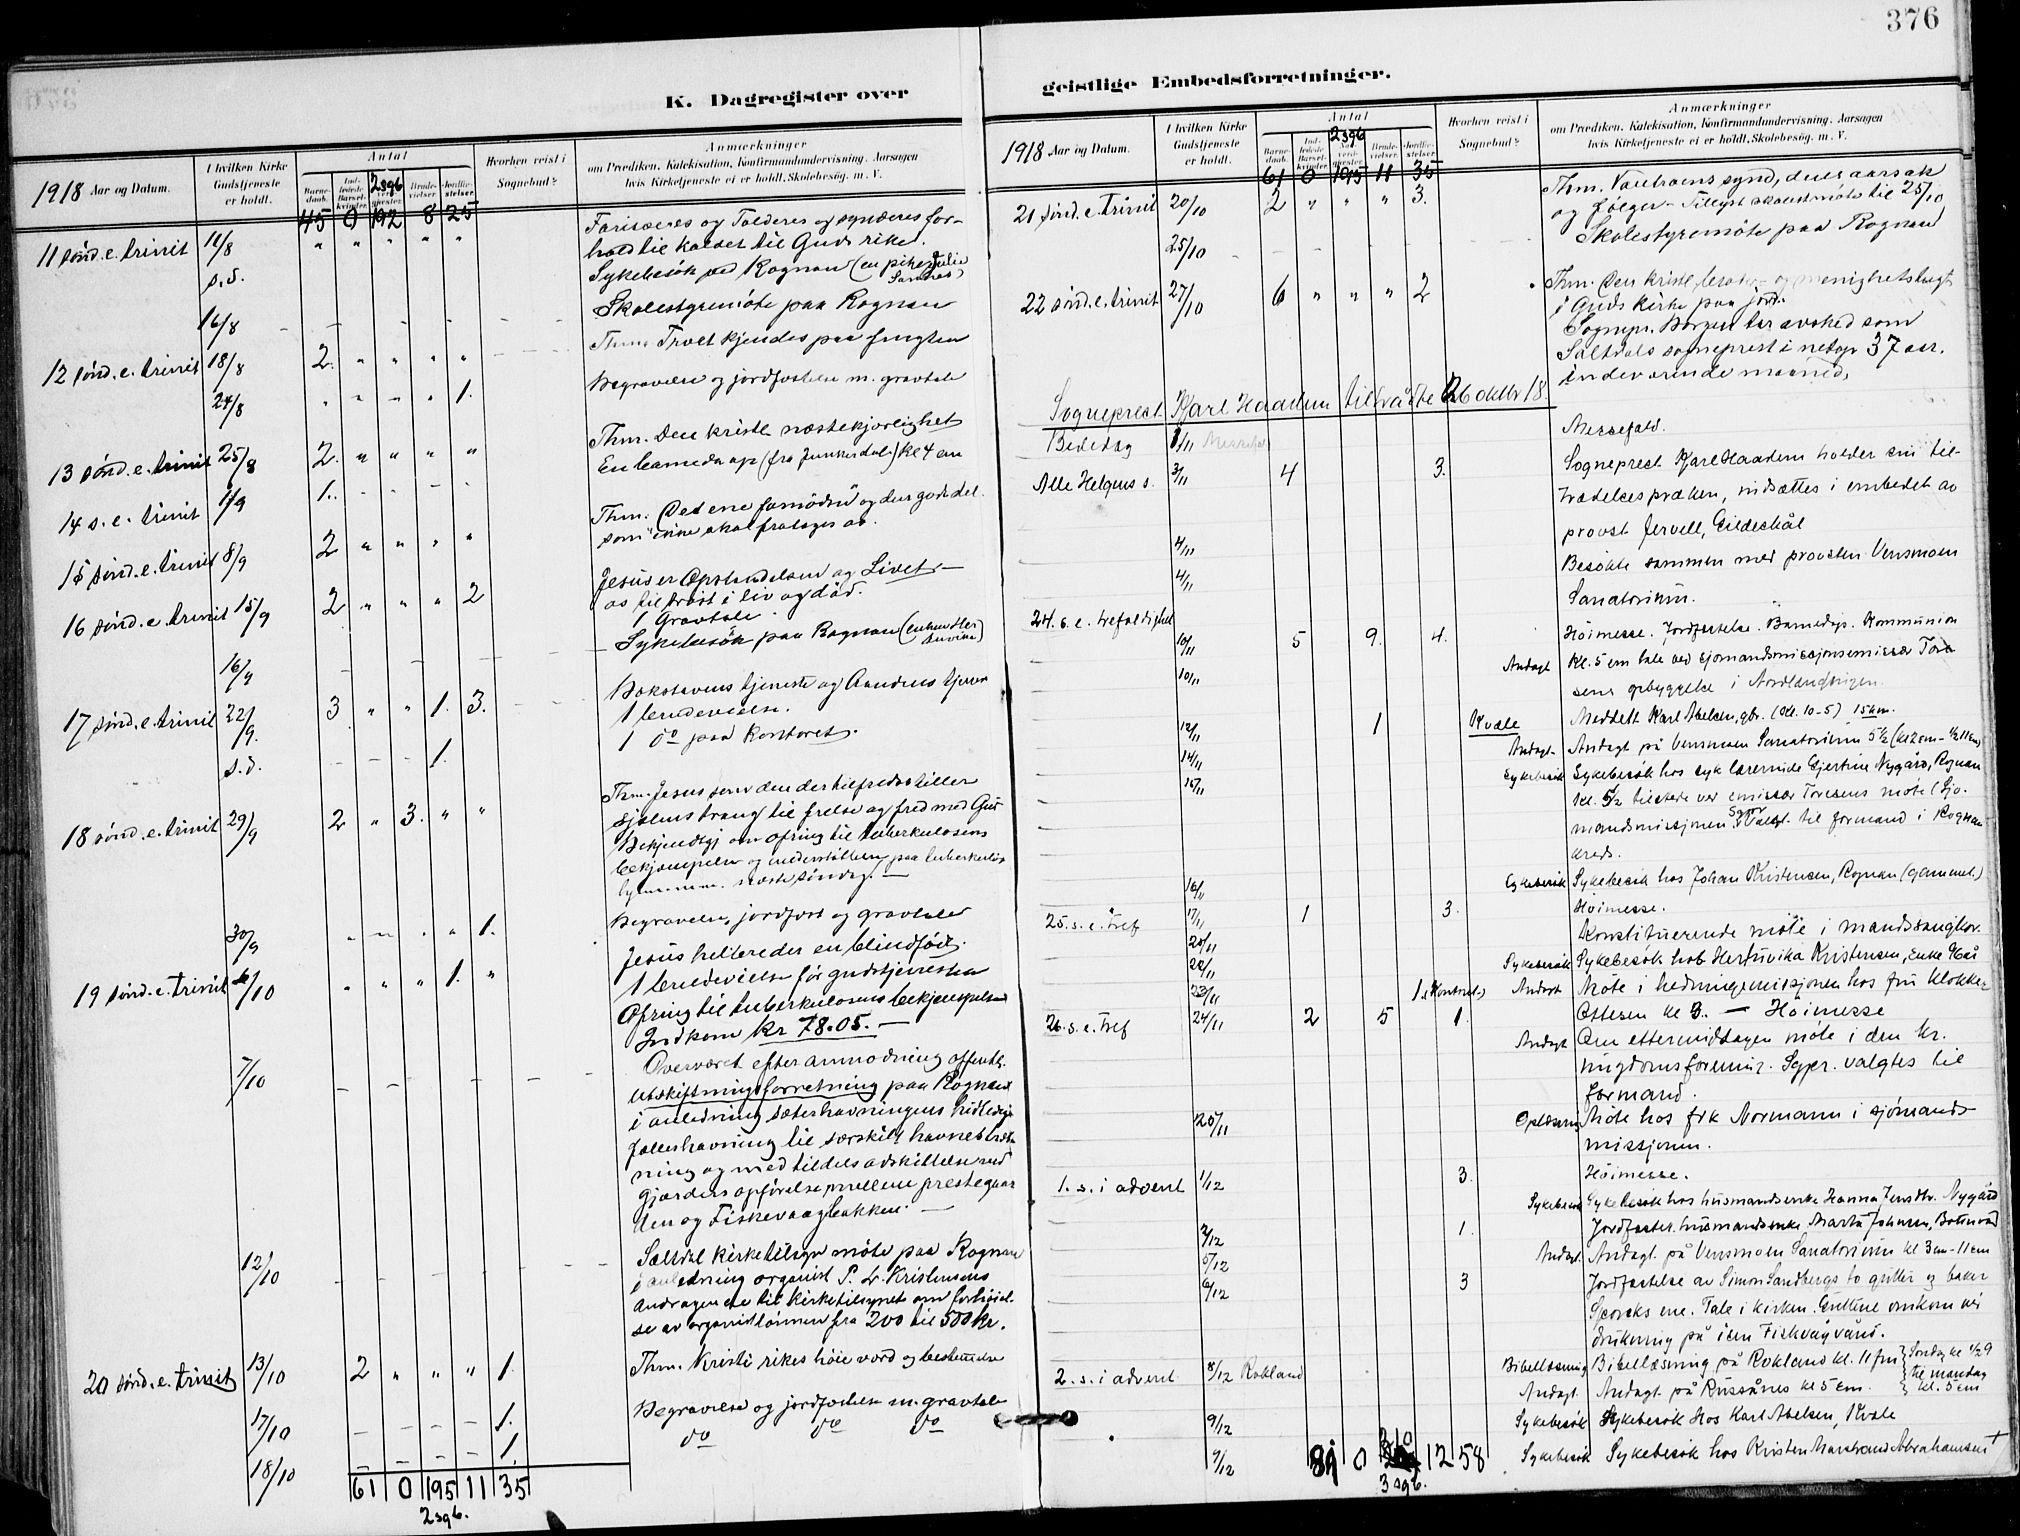 376
K. Dagregister over
geistlige Embedsforretninger.
1918 Aar og Datum.
I hvilken Kirke Gudstjeneste er holdt.
Antal
Barnedaab.
Indledede Barselkvinder.
Nadverdgjester.
Brudevielser.
Jordfæstelser.
Hvorhen reist i Sognebud?
Anmærkninger
om Prædiken, Katekisation, Konfirmandundervisning. Aarsagen
hvis Kirketjeneste ei er holdt. Skolebesøg. m. V.
2 sgb
45 0 192 8 25
11 sønd. e. trinit 11/8 " " " " " Farisæeres og Tolderes og synderes for-
hold til kaldet til Guds rike.
s.d. Sykebesøk ved Rognan (en pike Julie
16/8 Skolestyremöte paa Rognan
12 sønd. e. trinit 18/8 2. " " " " Thm. Træet kjendes paa frugten
24/8 1. Begravelse og jordfæstelse m. gravtale
13 sønd. e. trinit 25/8 2. " " " " Thm. Den kristl næstekjærlighet
En barnedaap (fra Junkerdal) kl 4 em
14 s. e. trinit 1/9 1.
15 sønd. e. trinit 8/9 2 " " " " Thm. Det ene fornödne og den gode del
som ikke skal fratages os.
16 sønd. e. trinit 15/9 2 " " " 2 Jesus er Opstandelsen og Livet –
os til tröst i liv og död.
1 Gravtale.
16/9 Sykebesök paa Rognan
17 sønd. e. trinit 22/9. 3 " " 1. 3. Bokstavens tjeneste og Aandens tjener
1 brudevielse.
s.d. 1. 1 do paa Kontoret.
18 sønd. e. trinit 29/9 2 " 3. " " Thm. Jesus som den der tilfredsstiller
sjælens trang til frelse og fred med Gud
Bekjendtgj om ofring til tuberkulosens
bekjæmpelse og understöttelse paa tuberkulose
næste söndag. —
30/9 " " " " 1. Begravelse, jordfæst og gravtale
19 sønd. e. trinit 6/10 " " " 1. " Jesus helbreder en blindfödt.
1 brudevielse för gudstjenesten
Ofring til tuberkulosens bekjæmpelse
Indkom kr 78.05. —
7/10 Overværet efter anmodning offentl.
utskiftningsforretning paa Rognan
i anledning sæterhavningens hidtidige
fælleshavning til særskilt havnestræk-
ning og med tildels adskillelse ved
gjærders opförelse mellem prestegaar
den og Fiskevaagbakken. —
12/10 Saltdal kirketilsyn möte paa Rognan
i anledning organist P. L. Kristensens
Andragende til kirketilsynet om forhöiel-
se av organistlönnen fra 200 til 500 kr.
20 sønd. e. trinit 13/10 2 " " " 1. Thm. Kristi rikes höie vard og bestemmelse
17/10 1. Begravelse og jordfæstelse m. gravtale
18/10 1. do do do
61 0 195 11 35
2 sgb.
1918 Aar og Datum.
I hvilken Kirke Gudstjeneste er holdt.
Antal
Barnedaab.
Indledede Barselkvinder.
Nadverdgjester.
Brudevielser.
Jordfæstelser.
Hvorhen reist i Sognebud?
Anmærkninger
om Prædiken, Katekisation, Konfirmandundervisning. Aarsagen
hvis Kirketjeneste ei er holdt. Skolebesøg. m. V.
2 sgb
61 0 195 11 35
21 sønd. e. trinit 20/10 2 " " " 3. Thm. Vantroens synd, dens aarsak
og følger – Tillyst skolestmöte til 25/10
25/10 Skolestyremöte paa Rognan
22 sønd. e. trinit 27/10 6 " " " 2 Thm. Den kristl. og menighetstugt
i Guds kirke paa jord.
Sognepr. Borgen tar avsked som
Saltdals sogneprest i netop 37 aar.
indeværende maaned.
Sogneprest Karl Haadem tiltrådte 26 oktbr 18.
Bededag 1/11 Messefald.
Alle Helgens s. 3/11 4 3. Sogneprest Karl Haadem holder sin til-
trædelsespræken, indsættes i embedet av
provst Jervell, Gildeskål
4/11 Besøkte sammen med provsten Vensmoen
4/11 Sanatorium.
24. s. e. trefoldighet 10/11 5 9. 4. Höimesse. Jordfæstelse. Barnedåp. Kommunion
10/11 Andagt Kl. 5 em tale ved sjömandsmissjonsemissær Tore-
sens opbyggelse i Nordlandshagen.
12/11 1 Kvæle Meddelt Karl Abelsen, gbr. (kl. 10-5) 15 km.
14/11 Andagt. Andagt på Vensmoen Sanatorium 5 1/2 (kl 2 em – 1/2 11 em)
15/11 Sykebesök Sykebesök hos syk lærerinde Gjertine Nygård, Rognan
Kl. 5 1/2 tilstede ved emissær Toresens möte (Sjö-
mandsmissjonen). Sgpr. valgt til formand i Rognan
kreds.
16/11 Sykebesök Sykebesök hos Johan Kristensen, Rognan (gammel.)
25. s. e. tref 17/11 1 3. Höimesse.
20/11 Konstituerende möte i mandssangkor.
22/11 Sykebesök Sykebesök hos Hertuvika Kristensen, Enke
23/11 1 (Kontoret) Andagt Möte i hedningemissjonen hos fru Klokker
26. s. e. tref 24/11 2 5 1. Ottesen kl 3. — Höimesse
Andagt Om ettermiddagen möte i den kr.
ungdomsforening. Sgpr. valgtes til
formand.
25/11 Oplæsning Möte hos frk Normann i sjömands-
missjonen.
1. s. i advent 1/12 3. Höimesse.
Sykebesök Sykebesök hos husmandsenke Hanna Jensdtr. Nygård
2/12 1. Jordfæster husmandsenke Marta Johnsen, Botnvad
5/12 Andagt. Andagt på Vensmoen Sanatorium kl 3 em – 11 em
6/12 3 Jordfæstelse av Simon Sandbergs to gutter og baker
Storeks ene. Tale i kirken. Guttene omkom ved
drukning på isen Fiskvågvand.
2. s. i advent 8/12 Rokland Bibellæsning Bibellæsning på Rokland kl. 11 fm } Söndag kl 1/2 9
Andagt. Andagt på Russånes kl 5 em. } til mandag kl. 5 em
9/12 Sykebesök Sykebesök hos Karl Abelsen, Kvæle
9/12 Sykebesök Sykebesök hos Kristen Marstrand Abrahamsen †
81 0 210 12 58
3 sgb.